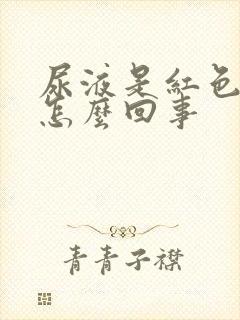 尿液是紅色
怎麼回事
青青子襟